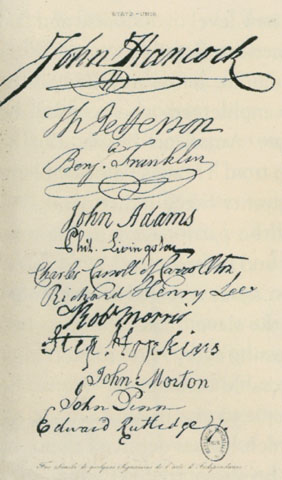 ÉTATS-UNIS
John Hancock
Th Jefferson
Benj. Franklin
John Adams
Phil. Livingston
Charles Carroll of Carrollton,
Richard Henry Lee
Rob Morris
Step. Hopkins
John Morton
John Penn
Edward Rutledge
Fac-simile de quelques signatures de l'acte d'Indépendance